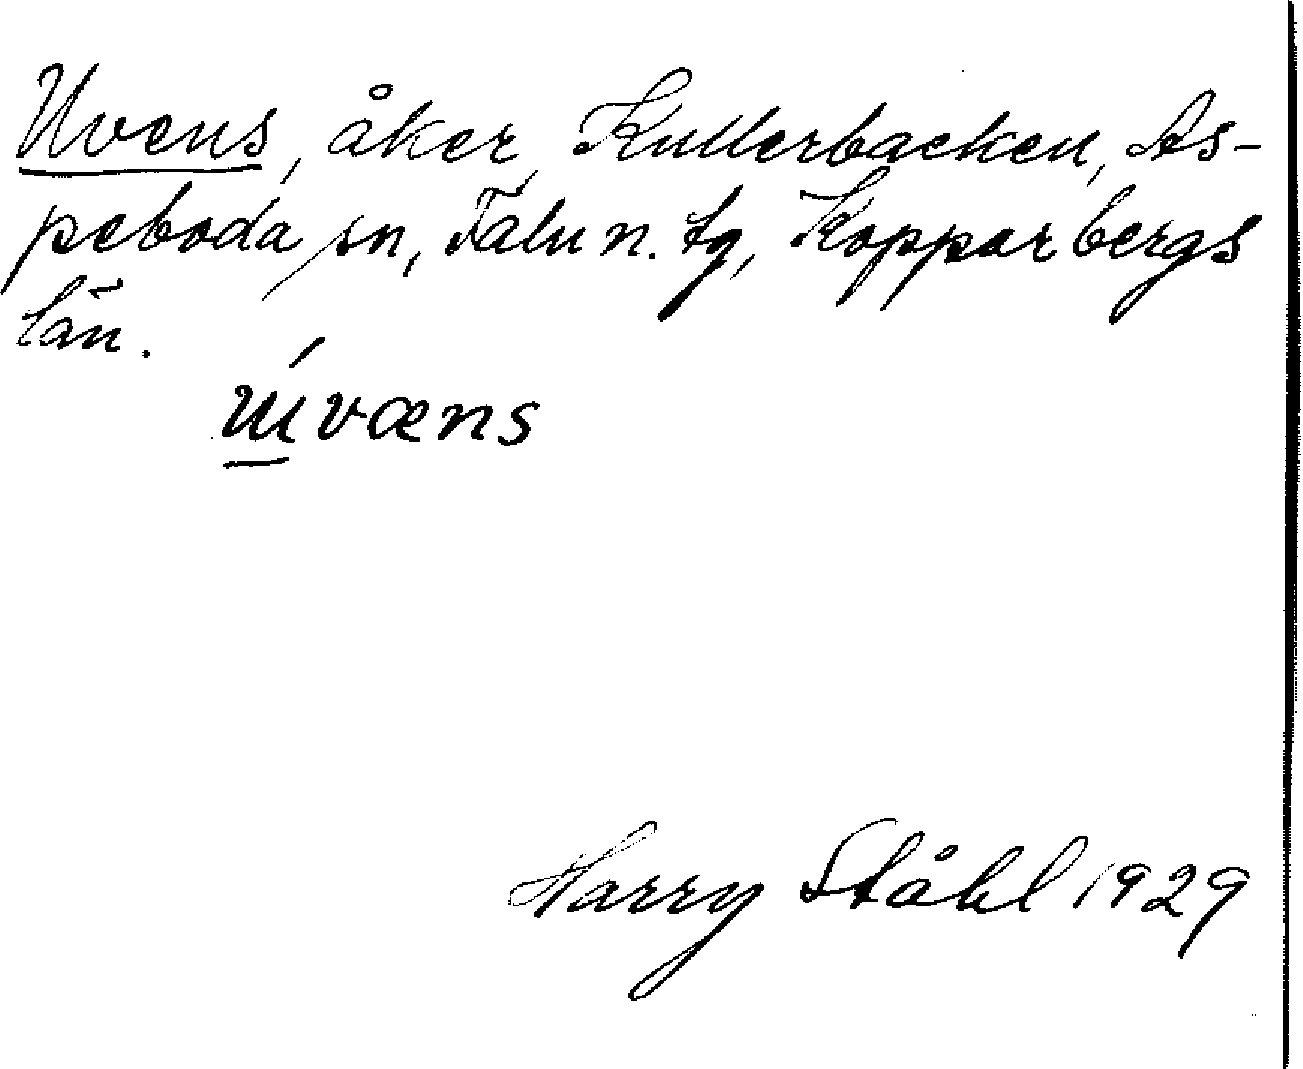 Uvens, åker, Kullerbacken, As-
peboda sn, Falu n. tg, Kopparbergs
län.
ɯ́væns
Harry Ståhl 1929